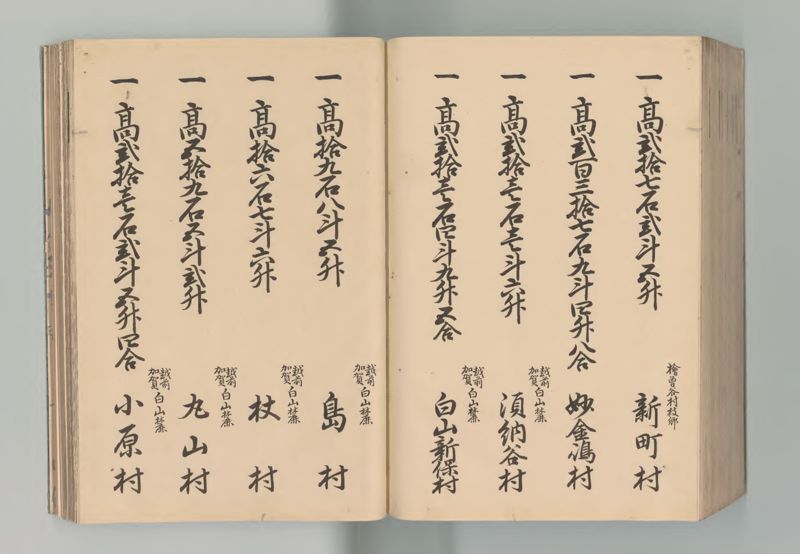 一 高弐拾七石弐斗五升
檜曽谷村枝郷
新町村
一 高弐百三拾七石九斗四升八合
妙金嶋村
一 高弐拾壱石壱斗六升
越前
加賀
白山麓
須納谷村
一 高弐拾壱石四斗九升五合
越前
加賀
白山麓
白山新保村
一 高拾九石八斗五升
越前
加賀
白山麓
島村
一 高拾六石七斗六升
越前
加賀
白山麓
杖村
一 高五拾九石五斗弐升
越前
加賀
白山麓
丸山村
一 高弐拾壱石弐斗五升四合
越前
加賀
白山麓
小原村